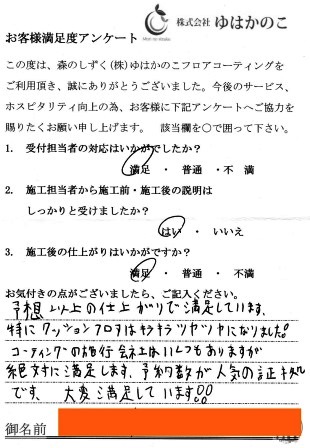 株式会社 ゆはかのこ
お客様満足度アンケート
この度は、森のしずく(株)ゆはかのこフロアコーティングを
ご利用頂き、誠にありがとうございました。今後のサービス、
ホスピタリティ向上の為、お客様に下記アンケートへご協力を
賜りたくお願い申し上げます。 該当欄を〇で囲って下さい。
1. 受付担当者の対応はいかがでしたか?
満足 ・ 普通 ・ 不満
2. 施工担当者から施工前・施工後の説明は
しっかりと受けましたか?
はい ・ いいえ
3. 施工後の仕上がりはいかがですか?
満足 ・ 普通 ・ 不満
お気付きの点がございましたら、ご記入ください。
予想以上の仕上がりで満足しています。
特にクッションフロアはキラキラツヤツヤになりました!
コーティングの施行会社はいくつもありますが
絶対に満足します、予約数が人気の証拠
です。 大変満足しています!!
御名前